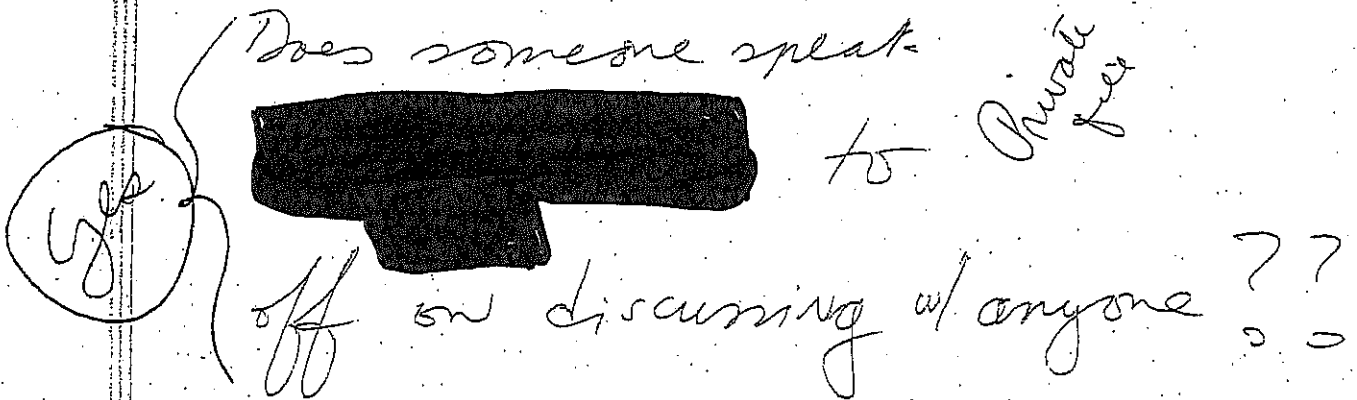 Does someone speak
Private
to
yes
off on discussing w/ anyone ??